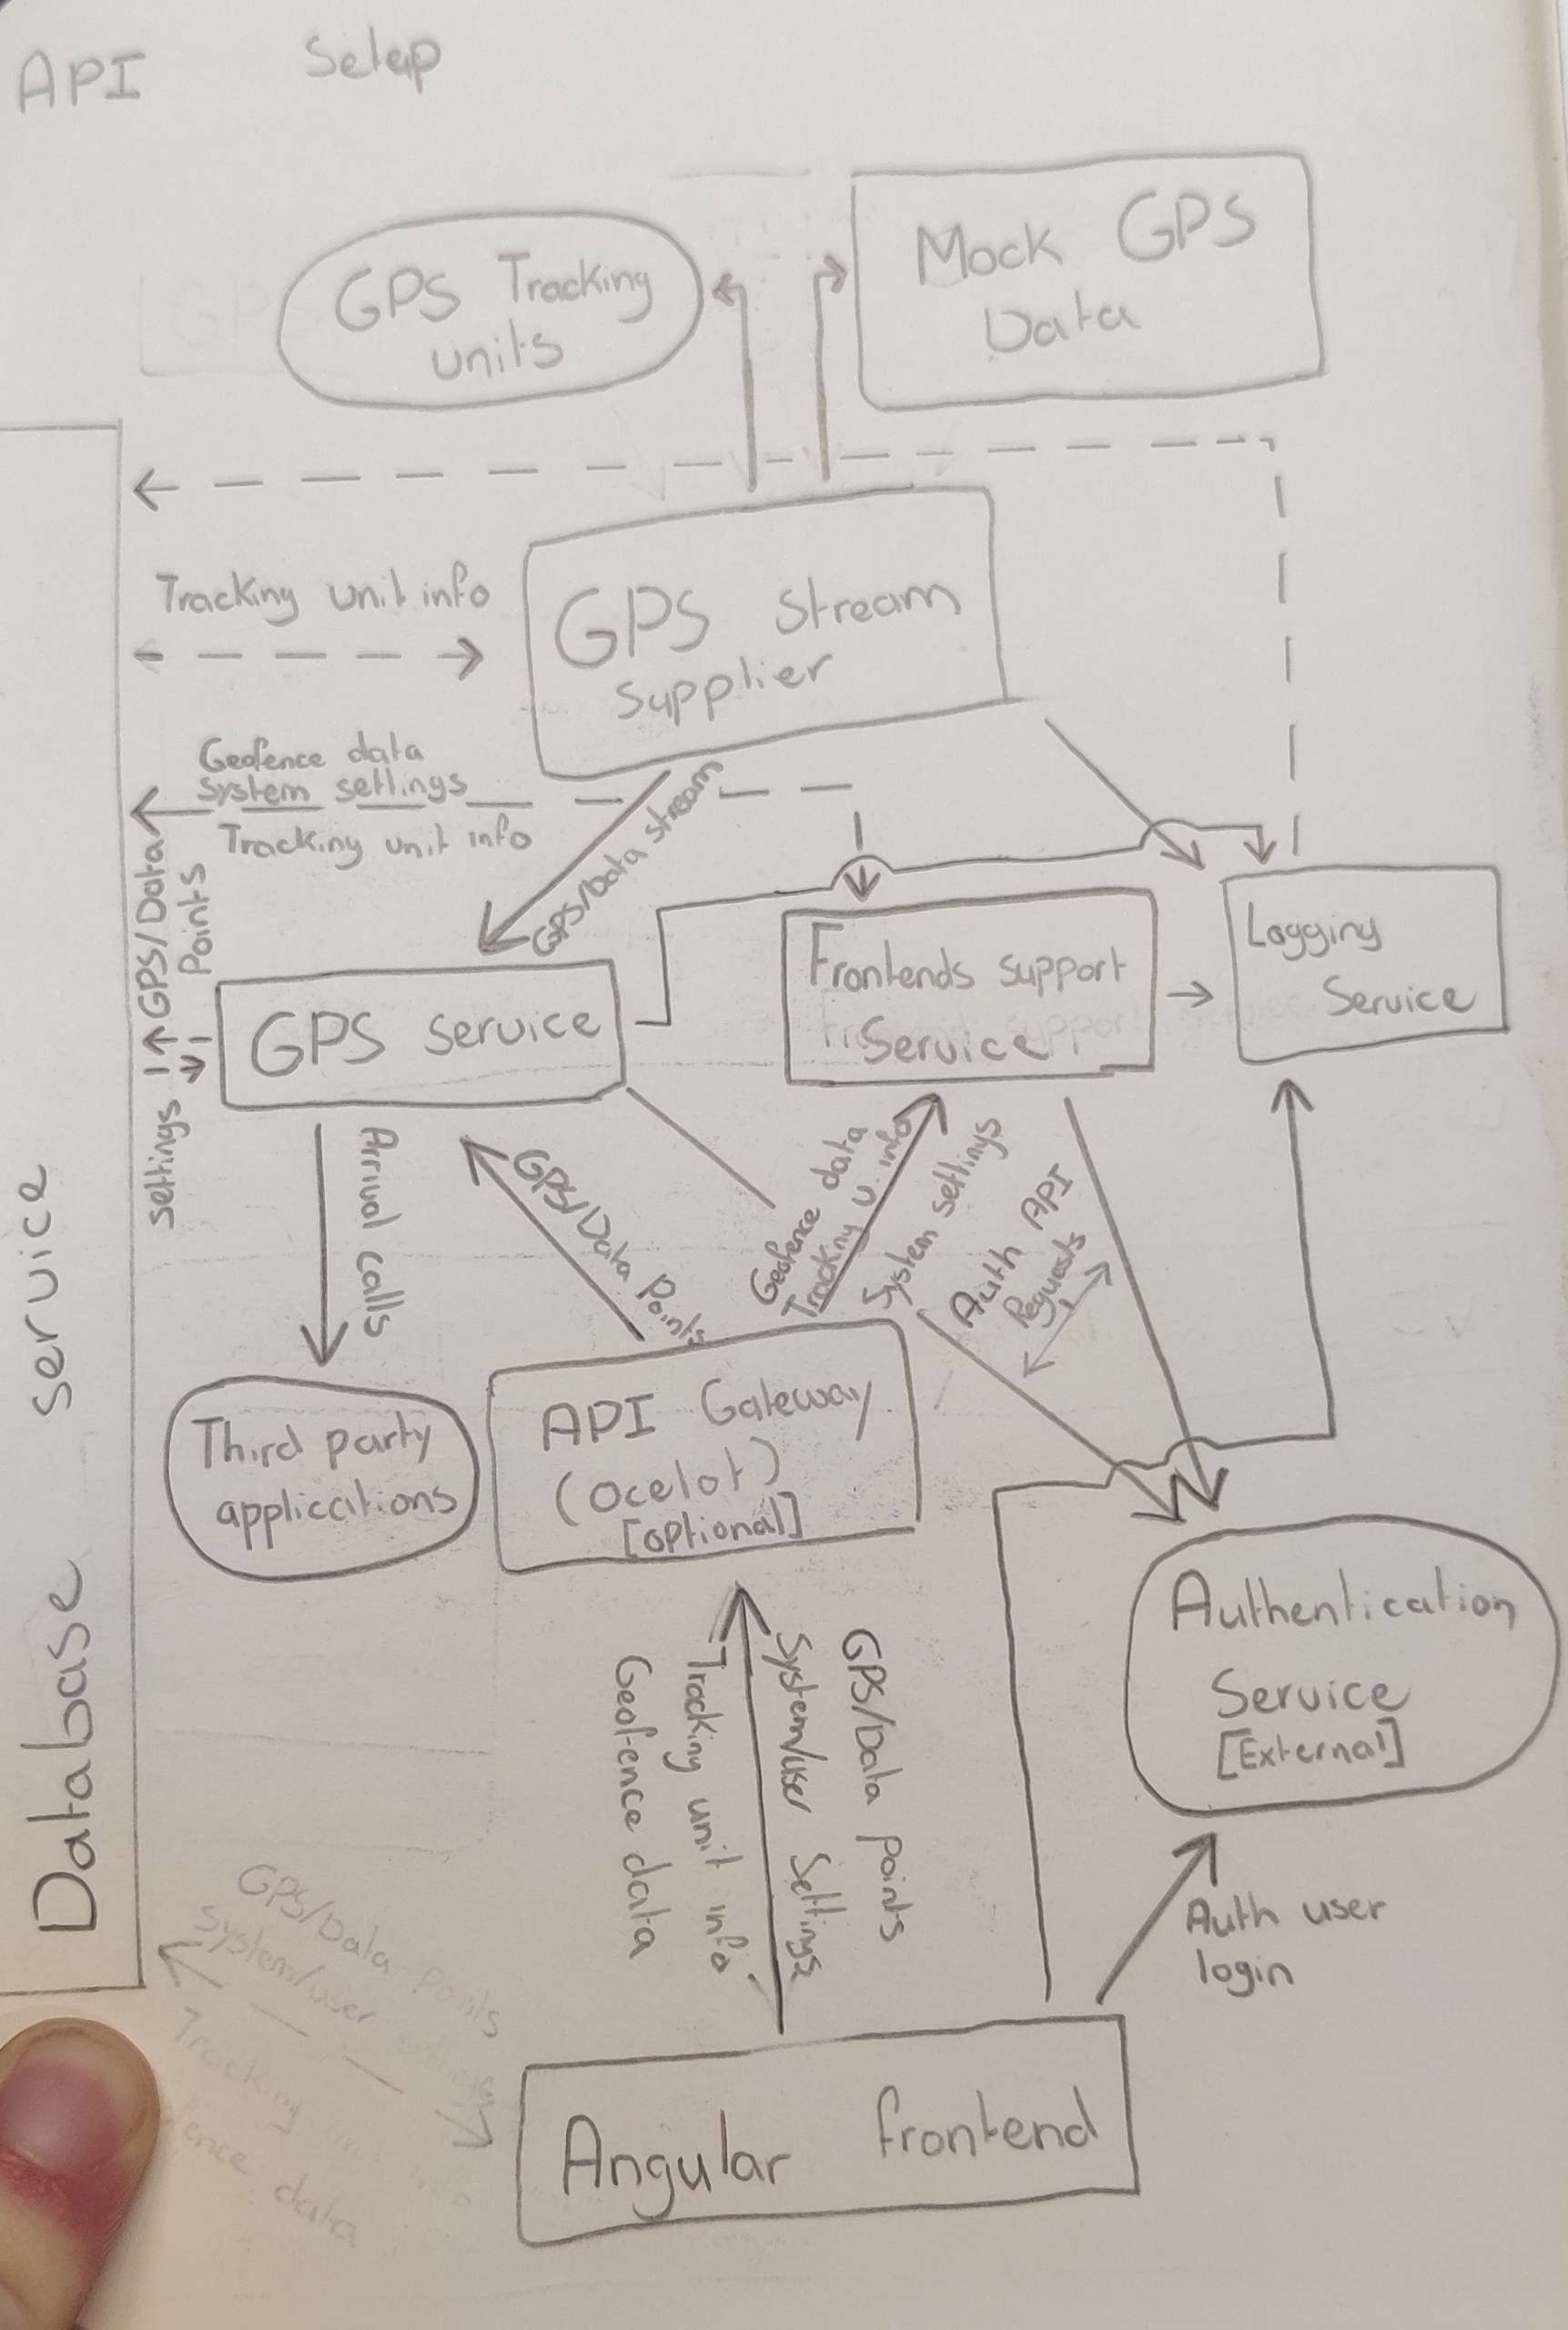 API Setup
GPS Tracking
units
Mock GPS
Data
Tracking unit info
GPS Stream
Supplier
Geofence data
system settings
Tracking unit info
GPS/Data stream
GPS/Data
Points
settings
GPS service
Frontends support
Service
Logging
Service
Arrival calls
GPS/Data Points
Geofence data
Tracking u. info
System settings
Auth API
Requests
Third party
applications
API Gateway
(Ocelot)
[optional]
Authentication
Service
[External]
GPS/Data points
System/user Settings
Tracking unit info
Geofence data
Auth user
login
Database service
GPS/Data points
system/user
Tracking info
data
Angular frontend